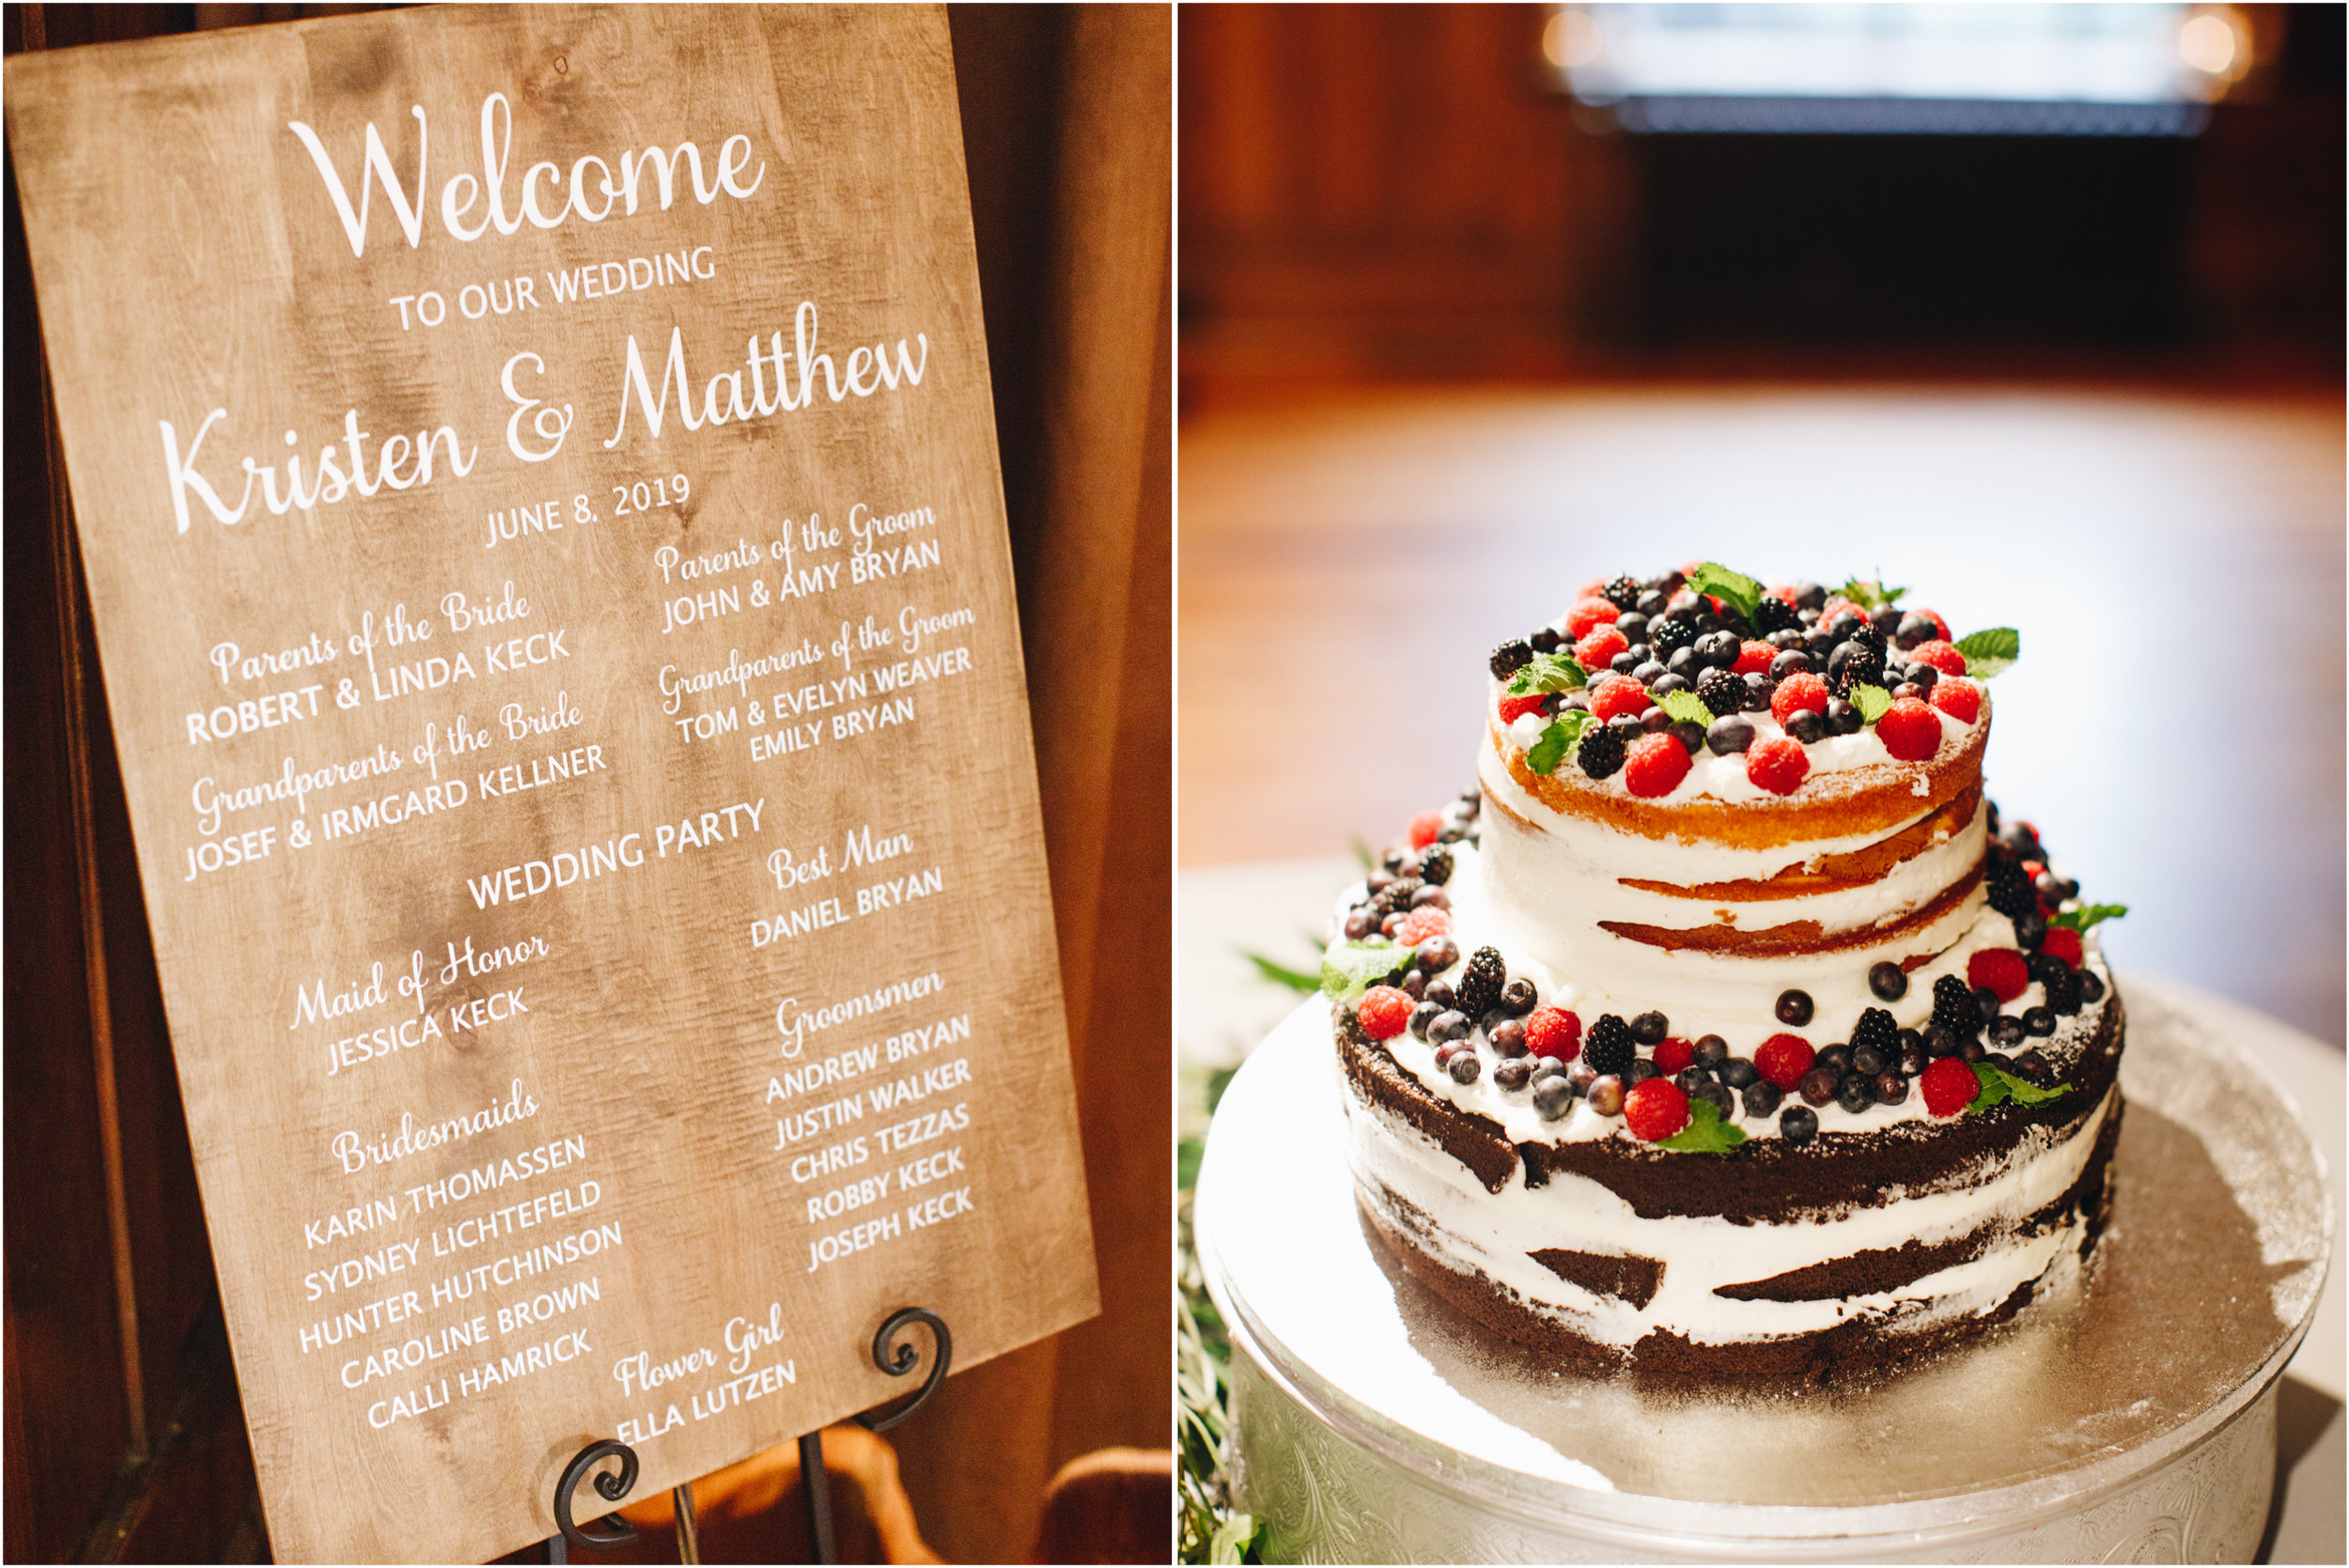 Welcome
TO OUR WEDDING
Kristen & Matthew
JUNE 8, 2019
Parents of the Bride
ROBERT & LINDA KECK
Grandparents of the Bride
JOSEF & IRMGARD KELLNER
Parents of the Groom
JOHN & AMY BRYAN
Grandparents of the Groom
TOM & EVELYN WEAVER
EMILY BRYAN
WEDDING PARTY
Maid of Honor
JESSICA KECK
Bridesmaids
KARIN THOMASSEN
SYDNEY LICHTEFELD
HUNTER HUTCHINSON
CAROLINE BROWN
CALLI HAMRICK
Best Man
DANIEL BRYAN
Groomsmen
ANDREW BRYAN
JUSTIN WALKER
CHRIS TEZZAS
ROBBY KECK
JOSEPH KECK
Flower Girl
ELLA LUTZEN